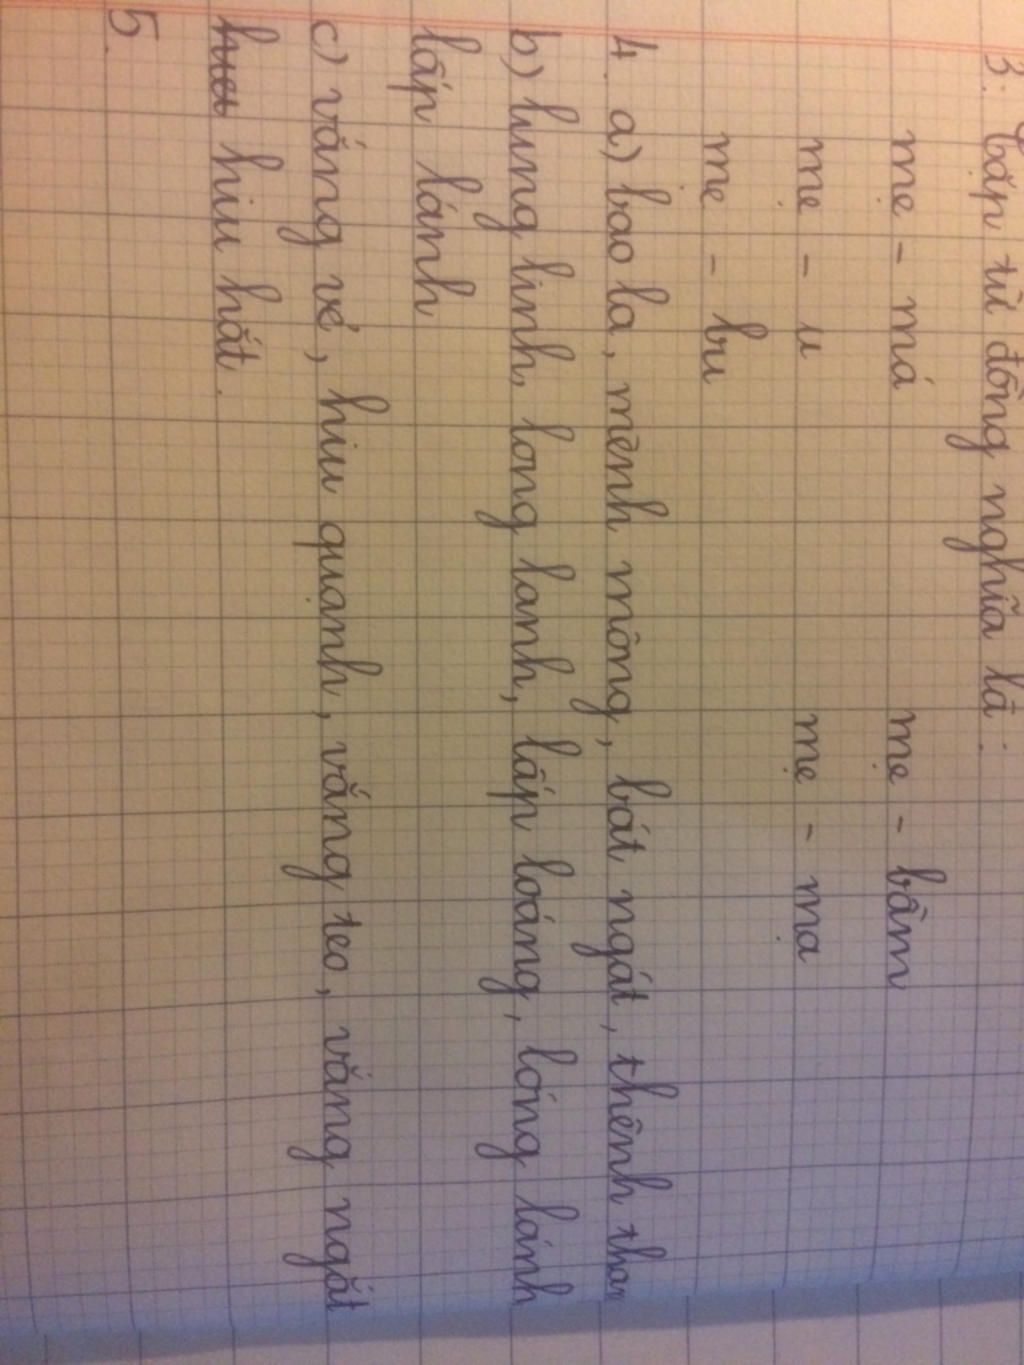 3. Cặp từ đồng nghĩa là:
mẹ - má mẹ - bầm
mẹ - u mẹ - mạ
mẹ - bu
4. a) bao la, mênh mông, bát ngát, thênh than
b) lung linh, long lanh, lấp loáng, lóng lánh
lấp lánh
c) vắng vẻ, hiu quạnh, vắng teo, vắng ngắt
hiu hắt.
5.